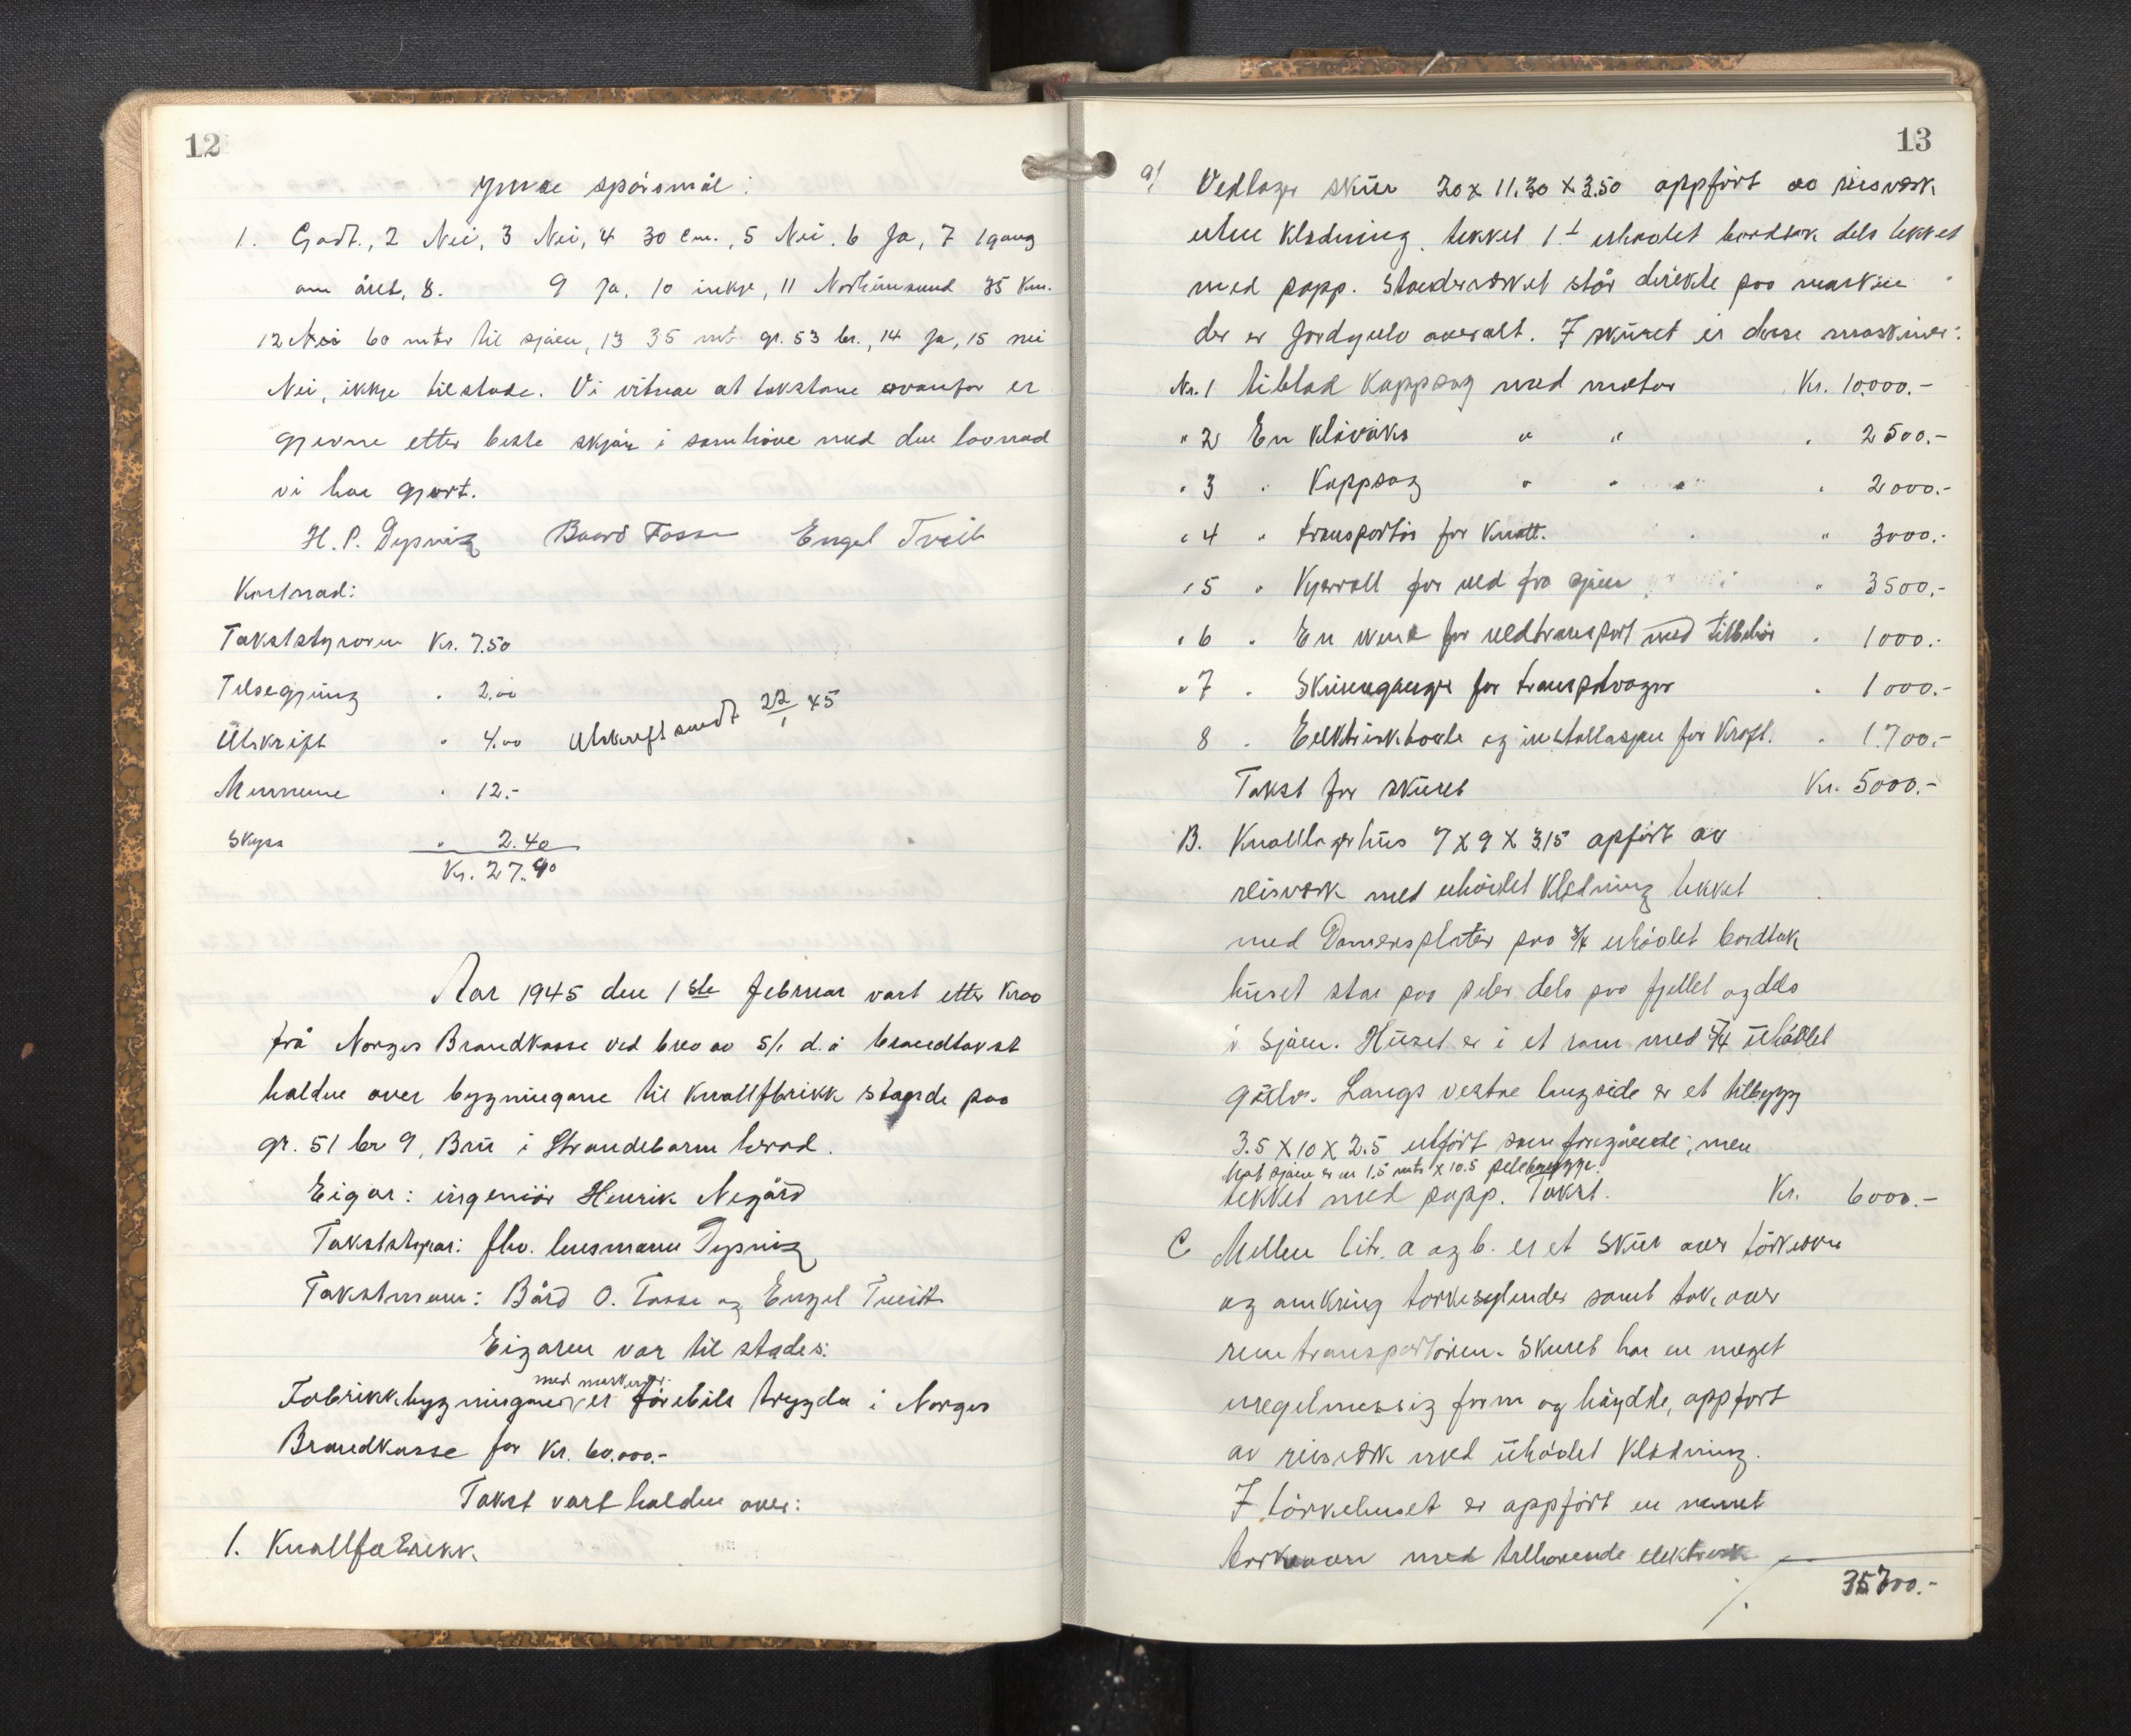 12
Ymse spörsmål:
1. Godt., 2 Nei, 3 Nei, 4 30 cm., 5 Nei. 6 Ja, 7 1 gang
om året, 8. 9 Ja, 10 inkje, 11 Norheimsund 35 Km.
12 Nei 60 mtr til sjøen, 13 35 mt gr. 53 br., 14 Ja, 15 nei
Nei, ikkje tilstade. Vi vitnae at takstane ovanfor er
gjevne etter beste skjön i samhöve med den lovnad
vi har gjort.
H. P. Dysvig Baard Fosse Engel Tveit
Kostnad:
Takststyraren Kr. 7.50
Tilsegjing " 2.00
Utskrift " 4.00 Utskrift sendt 22/1 45
Mennene " 12.-
Skyss " 2.40
Kr. 27.90
Aar 1945 den 1ste februar vart etter Krav
frå Norges Brandkasse ved brev av 5/1 d.å brandtakst
halden over bygningane til Knallfbrikk staande paa
gr. 51 br 9, Bru i Strandebarm herad.
Eigar: ingeniör Henrik Negård
Takststyrar: fhv. lensmann Dysvig
Takstmenn: Bård O. Fosse og Engel Tveit
Eigaren var til stades:
med maskener.
Fabrikkbygningane er förebils trygda i Norges
Brandkasse for Kr. 60.000.-
Takst vart halden over:
1. Knallfabrikk.
13
a/ Vedlager skur 20 x 11.30 x 3.50 oppfört av reisverk
uten kledning. tekket 1" uhøvlet bordtak dels tekket
med papp. Stenderverket står direkte paa marken
der er Jordgulv overalt. I skuret er desse maskiner:
Nr. 1 tiblad Kappsag med motor Kr. 10.000.-
" 2 En klöviks " " " 2500.-
" 3 " Kappsag " " " " 2000.-
" 4 " transportör for Knott. " 3000.-
" 5 " Kjerratt for ved fra sjøen " 3500.-
" 6 " En for vedtransport med tilbehör " 1000.-
" 7 " Skinnegange for transpdvogner " 1000.-
8 " Eelktrisktavle og installasjon for Kraft. " 1.700.-
Takst for skuret Kr. 5000.-
B. Knottlagerhus 7 X 9 X 3.15 opfört av
reisverk med uhövlet Kledning tekket
med plater paa 3/4 uhövlet bordtak
huset star paa peler dels paa fjellet og dels
i Sjøen. Huset er i et rom med 5/4 uhövlet
gölv. Langs vestre langside er et tilbygg
3.5 X 10 X 2.5 utfört som foregående, men
Mot sjøen er en 1,5 mtr X 10.5 pelebrygge.
tekket med papp. Takst. Kr. 6000.-
C Mellem litr. a og b. er et Skur over törkeovn
og omkring torkesylender samt tak over
rem transportören. Skuret har en meget
uregelmessig form og höydde, oppfort
av reisverk med uhövlet Kledning.
I törkehuset er oppfört en muret
torkeovn med tilhorende elektrisk
35700.-